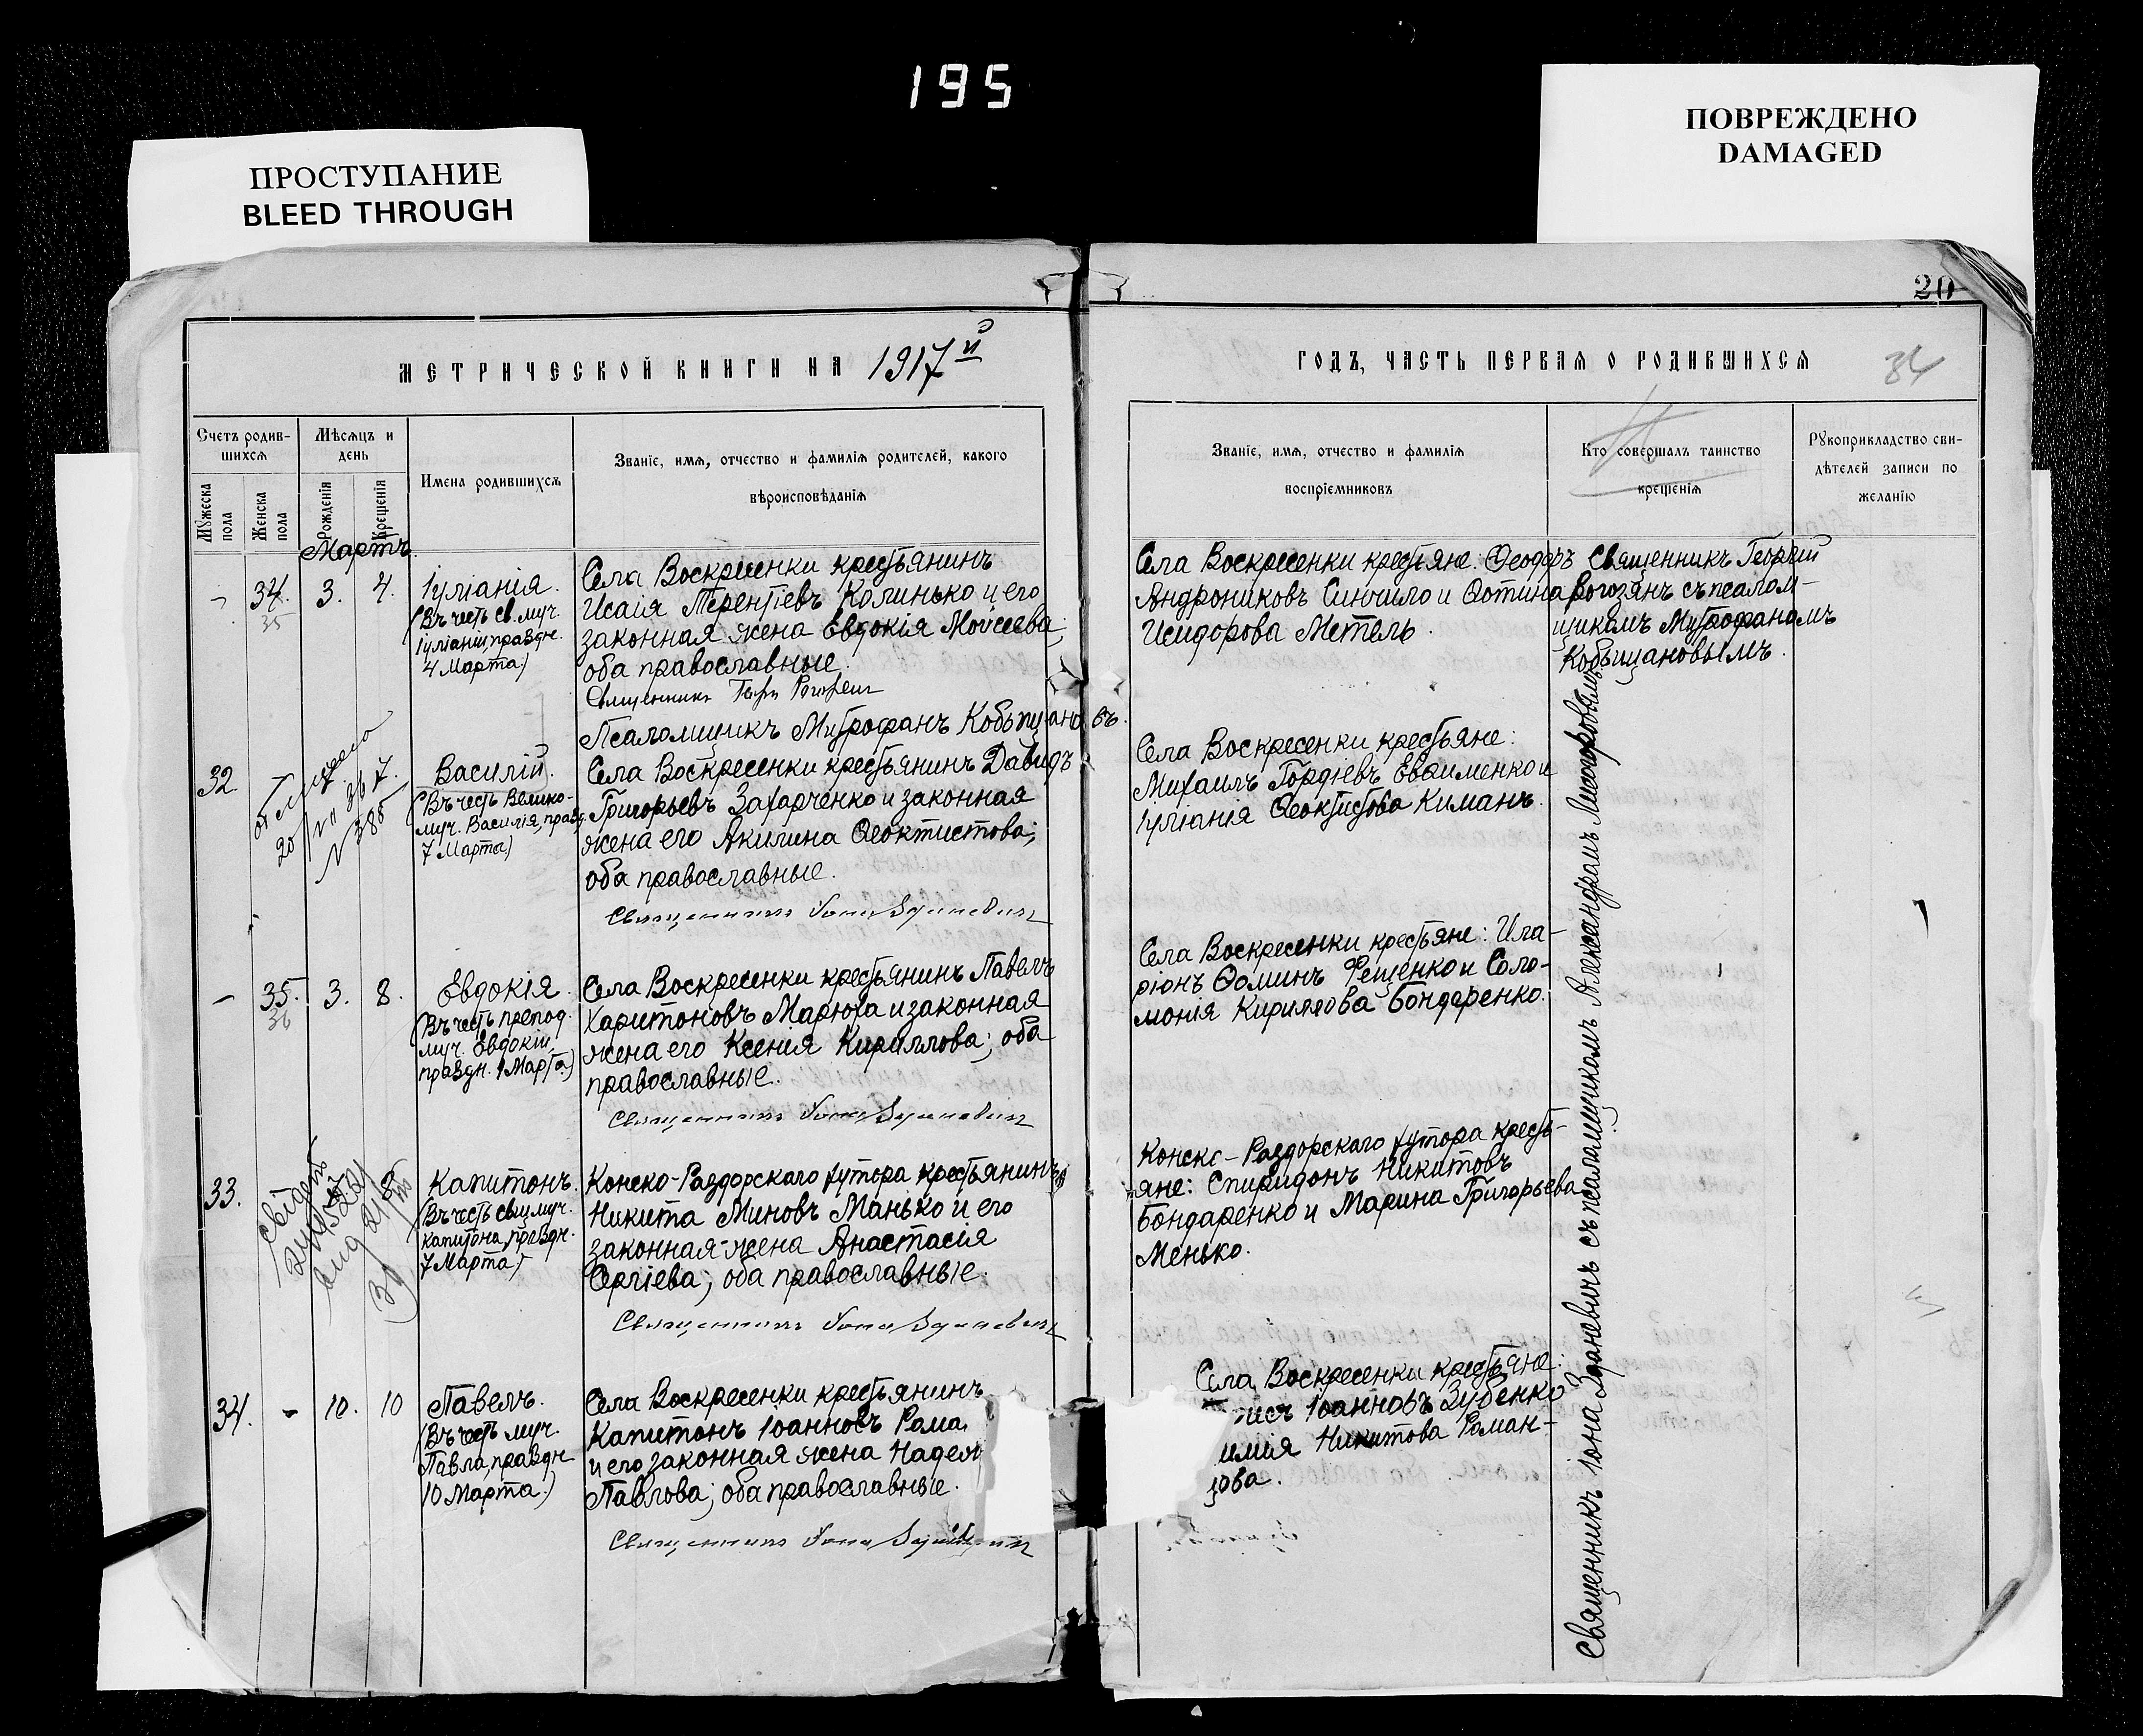 195
ПРОСТУПАНИЕ
BLEED THROUGH
ПОВРЕЖДЕНО
DAMAGED
20
МЕТРИЧЕСКОЙ КНИГИ НА 1917й
Счетъ родив-
шихся
Мѣсяцъ и
день
Мужеска
пола
Женска
пола
Рожденія
Крещенія
Имена родившихся
Званіе, имя, отчество и фамилія родителей, какого
вѣроисповѣданія
Мартъ.
34.
35
3.
4.
Іуліанія.
(Въ честь св. муч.
Іуліаніи, праздн.
4 Марта)
Села Воскресенки крестьянинъ
Исаія Терентіевъ Колинько и его
законная жена Евдокія Моисеева;
оба православные.
Священникъ
Псаломщикъ Митрофанъ Кобыщановъ.
32
№ 367.
№ 385
Василій.
(Въ честь Велико-
муч. Василія, празд.
7 Марта)
Села Воскресенки крестьянинъ Давидъ
Григорьевъ Захарченко и законная
жена его Акилина Ѳеоктистова;
оба православные.
Священникъ Іона Зданевичъ
-
35.
36
3.
8.
Евдокія.
(Въ честь препод.
муч. Евдокіи,
праздн. 1 Марта.)
Села Воскресенки крестьянинъ Павелъ
Харитоновъ Марюха и законная
жена его Ксенія Кириллова; оба
православные.
Священникъ Іона Зданевичъ
33.
Капитонъ.
(Въ честь свщмуч.
Капитона, праздн.
7 Марта)
Конско-Раздорскаго хутора крестьянинъ
Никита Миновъ Манько и его
законная жена Анастасія
Сергіева; оба православные.
Священникъ Іона Зданевичъ
34.
-
10.
10
Павелъ.
(Въ честь муч.
Павла, праздн.
10 Марта.)
Села Воскресенки крестьянинъ
Капитонъ Іоанновъ Рома
и его законная жена Надеж
Павлова; оба православные.
Священникъ Іона
ГОДЪ, ЧАСТЬ ПЕРВАЯ О РОДИВШИХСЯ
34
Званіе, имя, отчество и фамилія
воспріемниковъ
Кто совершалъ таинство
крещенія
Рукоприкладство сви-
дѣтелей записи по
желанію
Села Воскресенки крестьяне: Ѳеодоръ
Андрониковъ Синчило и Ѳотина
Исидорова Метель.
Священникъ Георгій
Рогозянъ съ псалом-
щикомъ Митрофаномъ
Кобыщановымъ.
Села Воскресенки крестьяне:
Михаилъ Гордіевъ Евѳименко и
Іуліанія Ѳеоктистова Киманъ.
Села Воскресенки крестьяне: Ила-
ріонъ Ѳоминъ Фещенко и Соло-
монія Кириллова Бондаренко.
Конско-Раздорскаго хутора кресть-
яне: Спиридонъ Никитовъ
Бондаренко и Марина Григорьева
Менько.
Села Воскресенки крестьяне:
Іоанновъ Зубенко
имія Никитова Роман-
ова.
Священникъ Іона Зданевичъ съ псаломщикомъ Александромъ